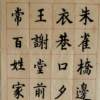 朱雀橋邊
衣巷口夕
王謝堂前
常百姓家